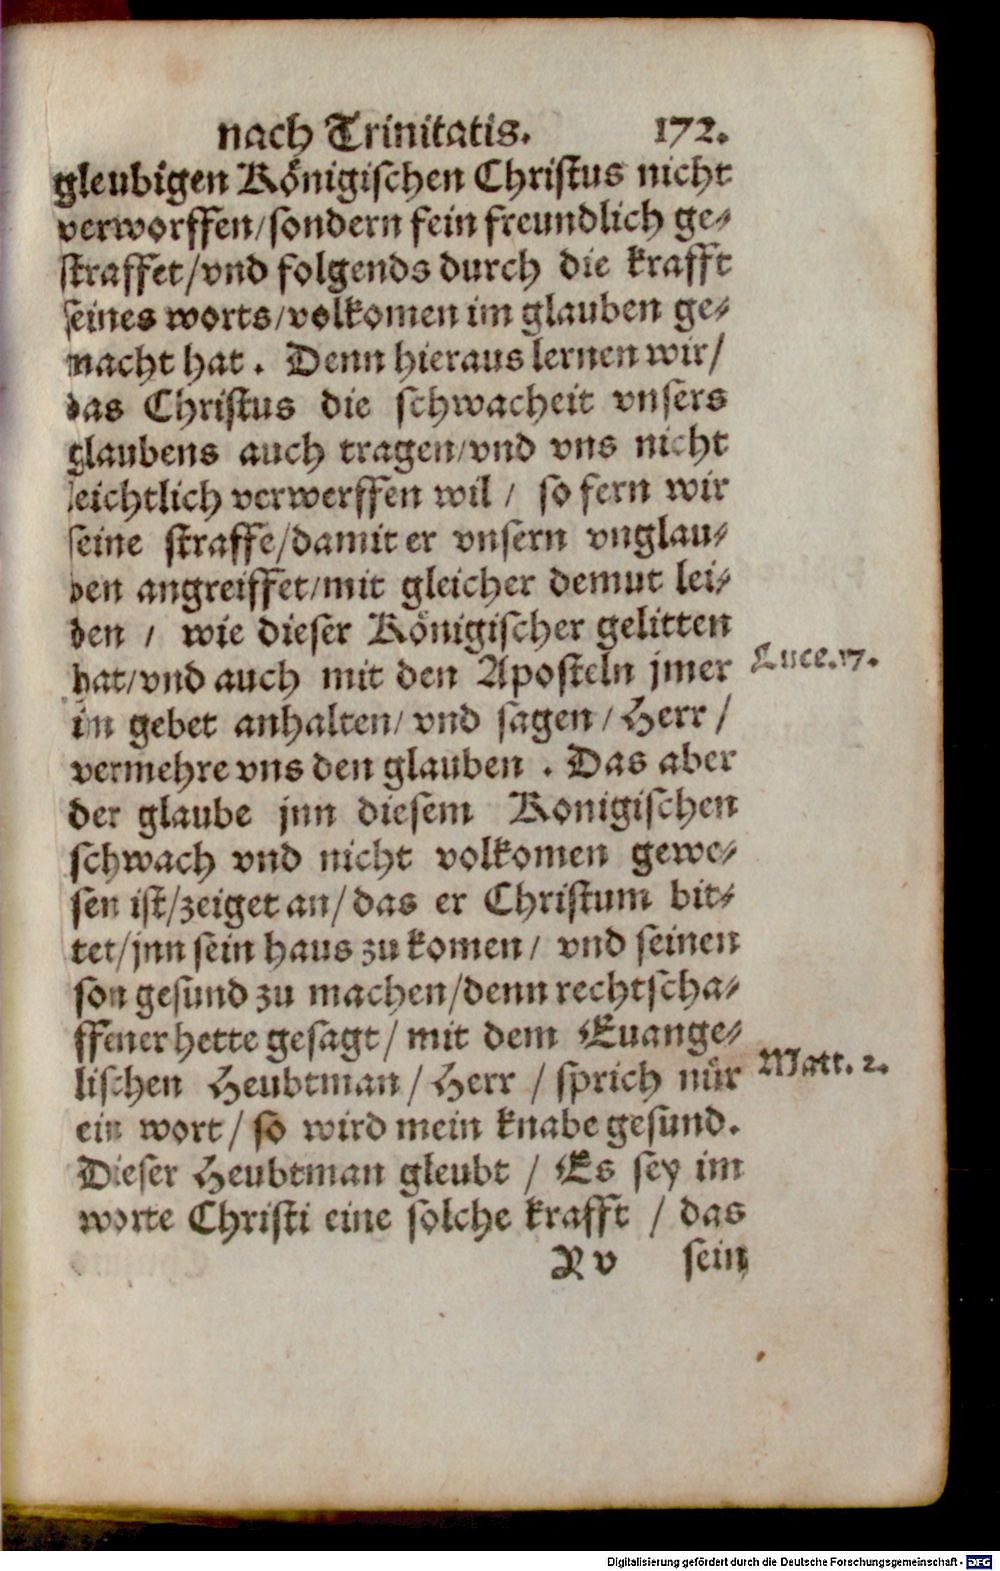 nach Trinitatis. 172.
gleubigen Königischen Christus nicht
verworffen/sondern fein freundlich ge-
straffet/vnd folgends durch die krafft
seines worts/volkomen im glauben ge-
macht hat. Denn hieraus lernen wir/
das Christus die schwacheit vnsers
glaubens auch tragen/vnd vns nicht
leichtlich verwerffen wil/ so fern wir
seine straffe/damit er vnsern vnglau-
ben angreiffet/mit gleicher demut lei-
den/ wie dieser Königischer gelitten
hat/vnd auch mit den Aposteln jmer
Luce.17.
im gebet anhalten/ vnd sagen/ Herr/
vermehre vns den glauben. Das aber
der glaube jnn diesem Konigischen
schwach vnd nicht volkomen gewe-
sen ist/zeiget an/das er Christum bit-
tet/jnn sein haus zu komen/ vnd seinen
son gesund zu machen/denn rechtscha-
ffener hette gesagt/ mit dem Euange-
lischen Heubtman/ Herr/ sprich nür
Matt. 2.
ein wort/ so wird mein knabe gesund.
Dieser Heubtman gleubt/ Es sey im
worte Christi eine solche krafft/ das
R v sein
Digitalisierung gefördert durch die Deutsche Forschungsgemeinschaft - DFG